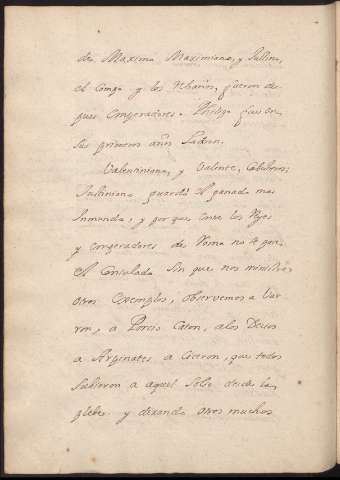 de Maximo Maximiano, y Jullino,
el Conga y los Tebanos, fueron des
pues Emperadores. Philipo fue en
sus primeros años Ladron.
Valentiniano, y Valente, Cabreros;
Justiniano guardó el ganado mas
inmundo, y por que entre los Reyes
y emperadores de Roma no se pon
el Consulado sin que nos ministre
otros exemplos, observemos a Var
ron, a Porcio Caton, a los Decios
a Arginates a Ciceron, que todos
subieron a aquel Solio desde la
gleba. y dexando otros muchos